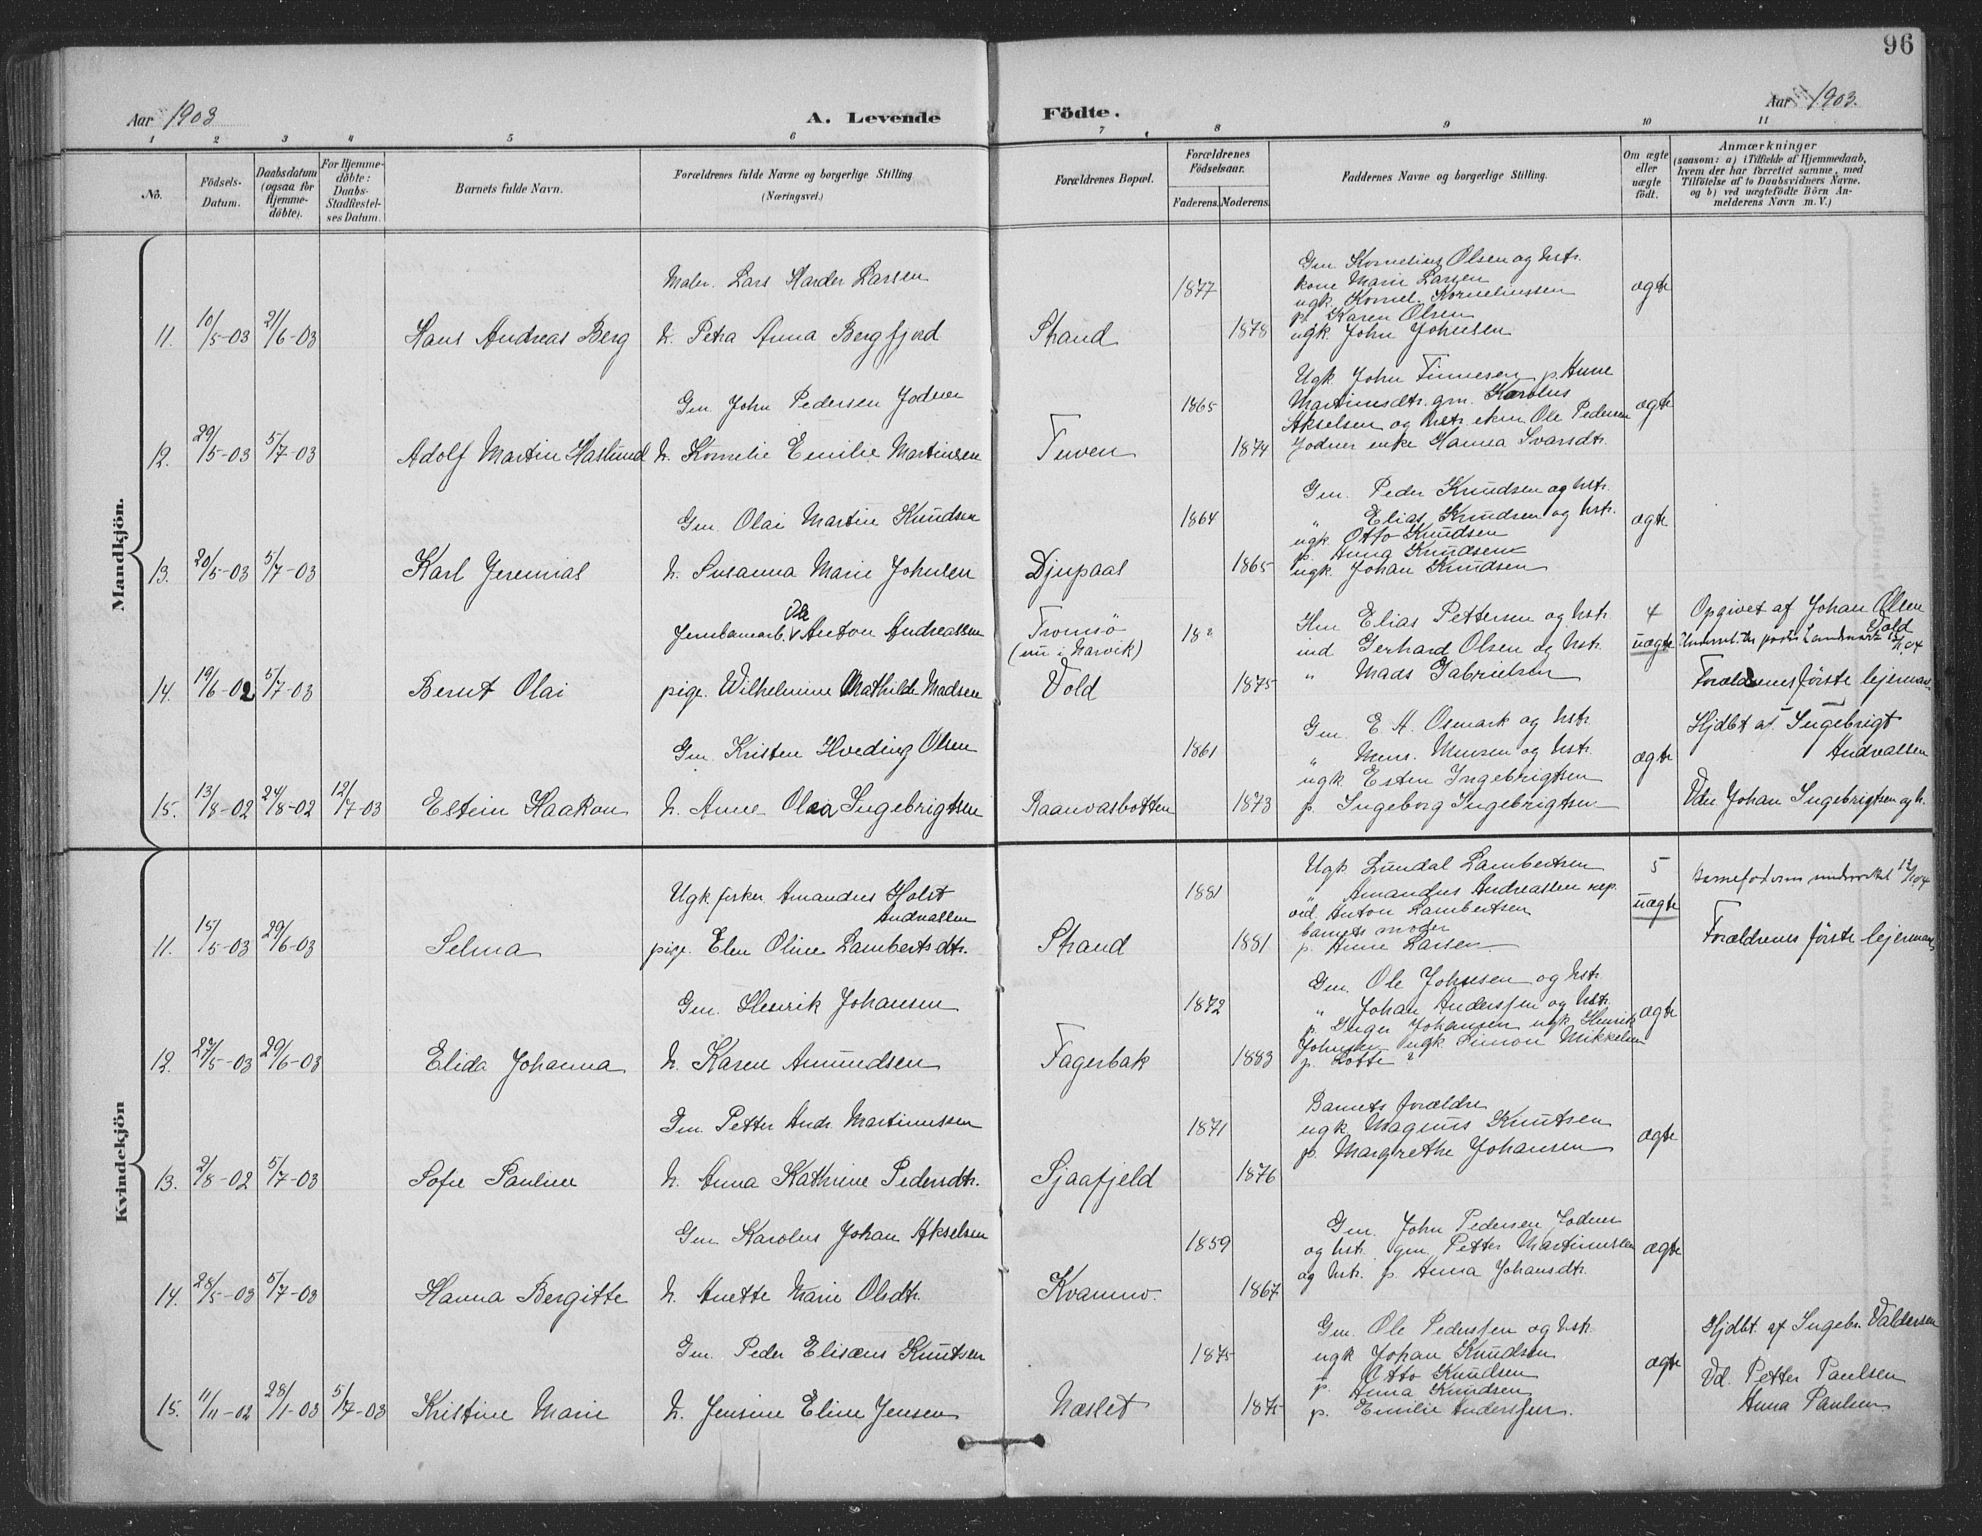 96
Aar 1903
A. Levende
Födte.
Aar 1903.
1 2 3 4 5 6 7 8 9 10 11
No.
Födsels-Datum.
Daabsdatum (ogsaa for Hjemme-döbte).
For Hjemme-döbte: Daabs-Stadfestel-ses Datum.
Barnets fulde Navn.
Forældrenes fulde Navne og borgerlige Stilling
(Næringsvei.)
Forældrenes Bopæl.
Forældrenes Födselsaar.
Faderens. Moderens.
Faddernes Navne og borgerlige Stilling.
Om ægte eller uægte födt.
Anmærkninger
(saasom: a) i Tilfælde af Hjemmedaab,
hvem der har forrettet samme, med
Tilföielse af to Daabsvidners Navne,
og b) ved uægtefödte Börn An-
melderens Navn m. V.)
Mandkjön.
11. 10/5-03 21/6-03 Hans Andreas Berg
Maler. Lars Harder Larsen
h. Petra Anna Bergfjord
Strand
1877
1878
Gm. Kornelius Olsen og hstr.
kone Marie Larsen
ugk. Kornel. Korneliussen
p. Karen Olsen
ugk. John Johnsen
ægte
12. 29/5-03 5/7-03 Adolf Martin Haslund
Gm. John Pedersen Jodner
h. Kornelie Emilie Martinsen
Tuven
1865
1874
Ugk. John Finnesen p. Anne
Martinusdtr. gm. Karolus
Akselsen og hstr. ekm Ole Pedersen
Jodner enke Hanna Ivarsdtr.
ægte
13. 20/5-03 5/7-03 Karl Jeremias
Gm. Olai Martin Knudsen
h. Susanna Marie Johnsen
Djupaas
1864
1865
Gm. Peder Knudsen og hstr.
" Elias Knudsen og hstr.
ugk. Otto Knudsen
p. Anna Knudsen
ugk. Johan Knudsen
ægte
14. 19/6-02 5/7-03 Bernt Olai
Jernbanearb. Ole Anton Andreassen
pige. Wilhelmine Mathilde Madsen
Tromsö
(nu i Narvik)
Vold
18?
1875
Hm Elias Pettersen og hstr.
ind Gerhard Olsen og hstr.
" Mads Gabrielsen
4
uægte
Opgivet af Johan Olsen
Vold
Forældrenes förste lejermaal
15. 13/8-02 24/8-02 12/7-03 Estein Haakon
Gm. Kristen Hveding Olsen
h. Anne Olea Ingebrigtsen
Raanvasbotten
1861
1873
Gm. E. A. Osmark og hstr.
" Mons. Monsen og hstr.
ugk Esten Ingebrigtsen
p. Ingeborg Ingebrigtsen
ægte
Hjdbt af Ingebrigt
Andreassen
Vdn Johan Ingebrigtsen og h.
Kvindekjön
11. 15/5-03 29/6-03 Selma
Ugk fisker Amandus Holst
Andreassen
pige. Elen Oline Lambertsdtr.
Strand
1881
1881
Ugk Lundal Lambertsen
" Amandus Andreassen rep.
ved Anton Lambertsen
barnets moder
p. Anne Larsen
5
uægte
Barnefaderen underrettet 12/1 04
Forældrenes förste lejermaal
12. 27/5-03 29/6-03 Elida Johanna
Gm. Henrik Johansen
h. Karen Amundsen
Fagerbak
1872
1883
Gm. Ole Johnsen og hstr.
" Johan Anderssen og hstr.
p. Inger Johansen ugk Henrik
Johnsen ugk. Simon Mikkelsen
p. Lotte ?
ægte
13. 2/8-02 5/7-03 Sofie Pauline
Gm. Petter Andr. Martinussen
h. Anna Kathrine Pedersdtr.
Sjaafjeld
1871
1876
Barnets forældre
ugk Magnus Knutsen
p. Margrethe Johansen
ægte
14. 28/5-03 5/7-03 Hanna Bergitte
Gm Karolus Johan Akselsen
h. Anette Marie Olsdtr.
Kvammo.
1859
1867
Gm. John Pedersen Jodner
og hstr. gm Petter Martinussen
og hstr. p. Anna Johansdtr.
ægte
15. 11/11-02 28/1-03 5/7-03 Kristine Marie
Gm. Peder Elisæus Knutsen
h. Jensine Eline Jensen
Næslet
1875
1875
Gm. Ole Pederssen og hstr.
ugk Johan Knudsen
" Otto Knudsen
p. Anna Knudsen
p. Emilie Anderssen.
ægte
Hjdbt. af Ingebr. Valdersen
Vd. Petter Paulsen
Anna Paulsen